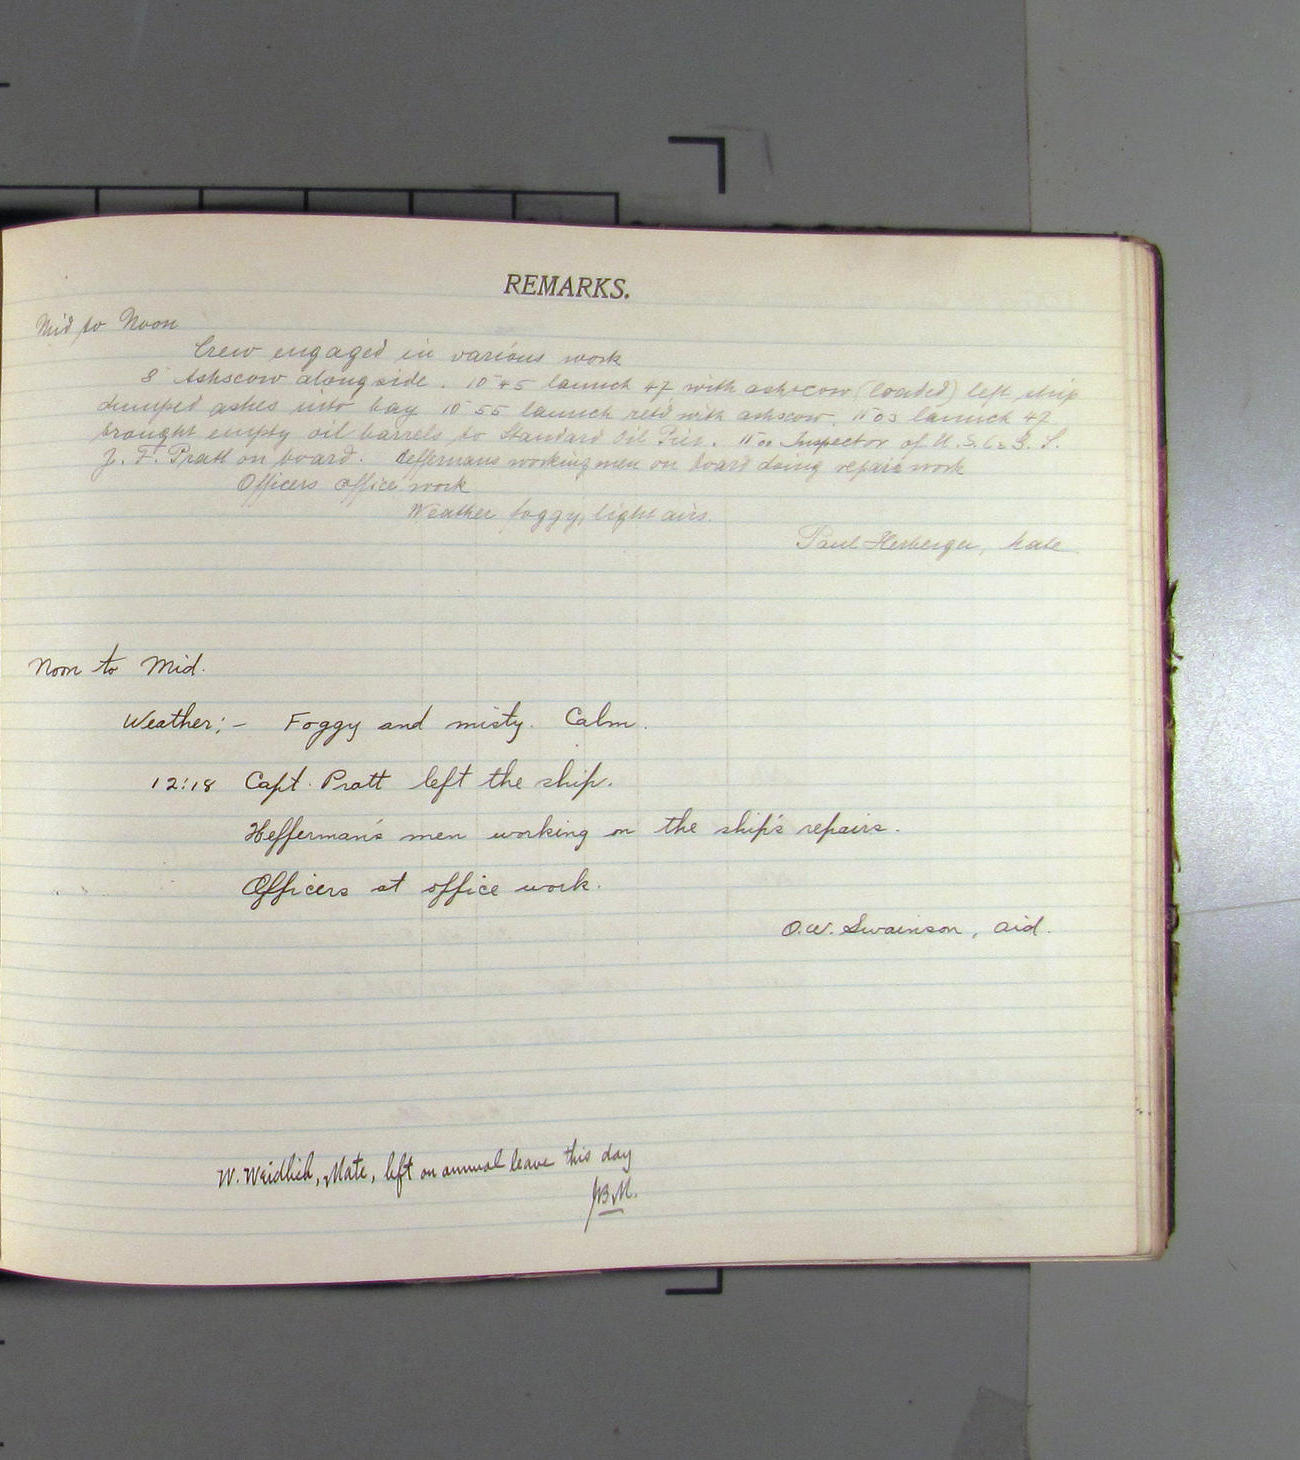 REMARKS.
Mid to Noon
Crew engaged in various work
8 Ashscow alongside. 10 45 launch 47 with ashscow (loaded) left ship
dumped ashes into bay 10 55 launch retd with ashscow. 11 03 launch 47
brought empty oil barrels to Standard Oil Pier. 11 00 Inspector of U.S.C. & G.S.
J. F. Pratt on board. Heffernans workingmen on board doing repair work
Officers office work
Weather foggy, light airs.
Paul Herberger, Mate
Noon to Mid.
Weather:- Foggy and misty. Calm.
12:18 Capt. Pratt left the ship.
Hefferman's men working on the ship's repairs.
Officers at office work.
O.W. Swainson, aid.
W. Weidlich, Mate, left on annual leave this day
JBM.